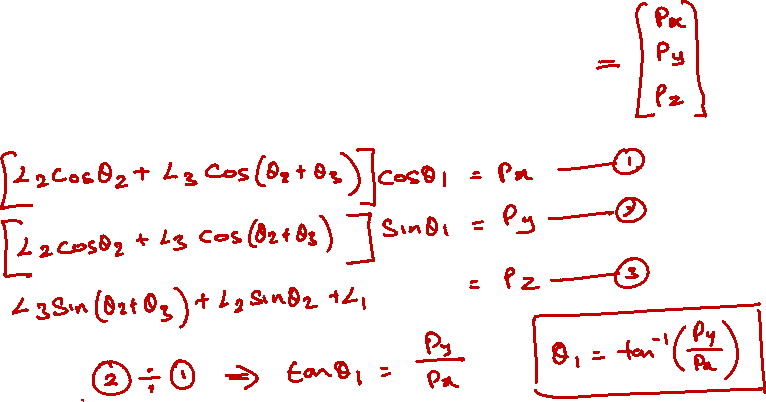 = [Px
Py
Pz]
[L2cosθ2 + L3 Cos(θ2+θ3)]cosθ1 = Px —— ①
[L2cosθ2 + L3 cos(θ2+θ3)] Sinθ1 = Py —— ②
L3Sin(θ2+θ3) + L2Sinθ2 + L1 = Pz —— ③
② ÷ ① ⇒ tanθ1 = Py/Px θ1 = tan⁻¹(Py/Px)